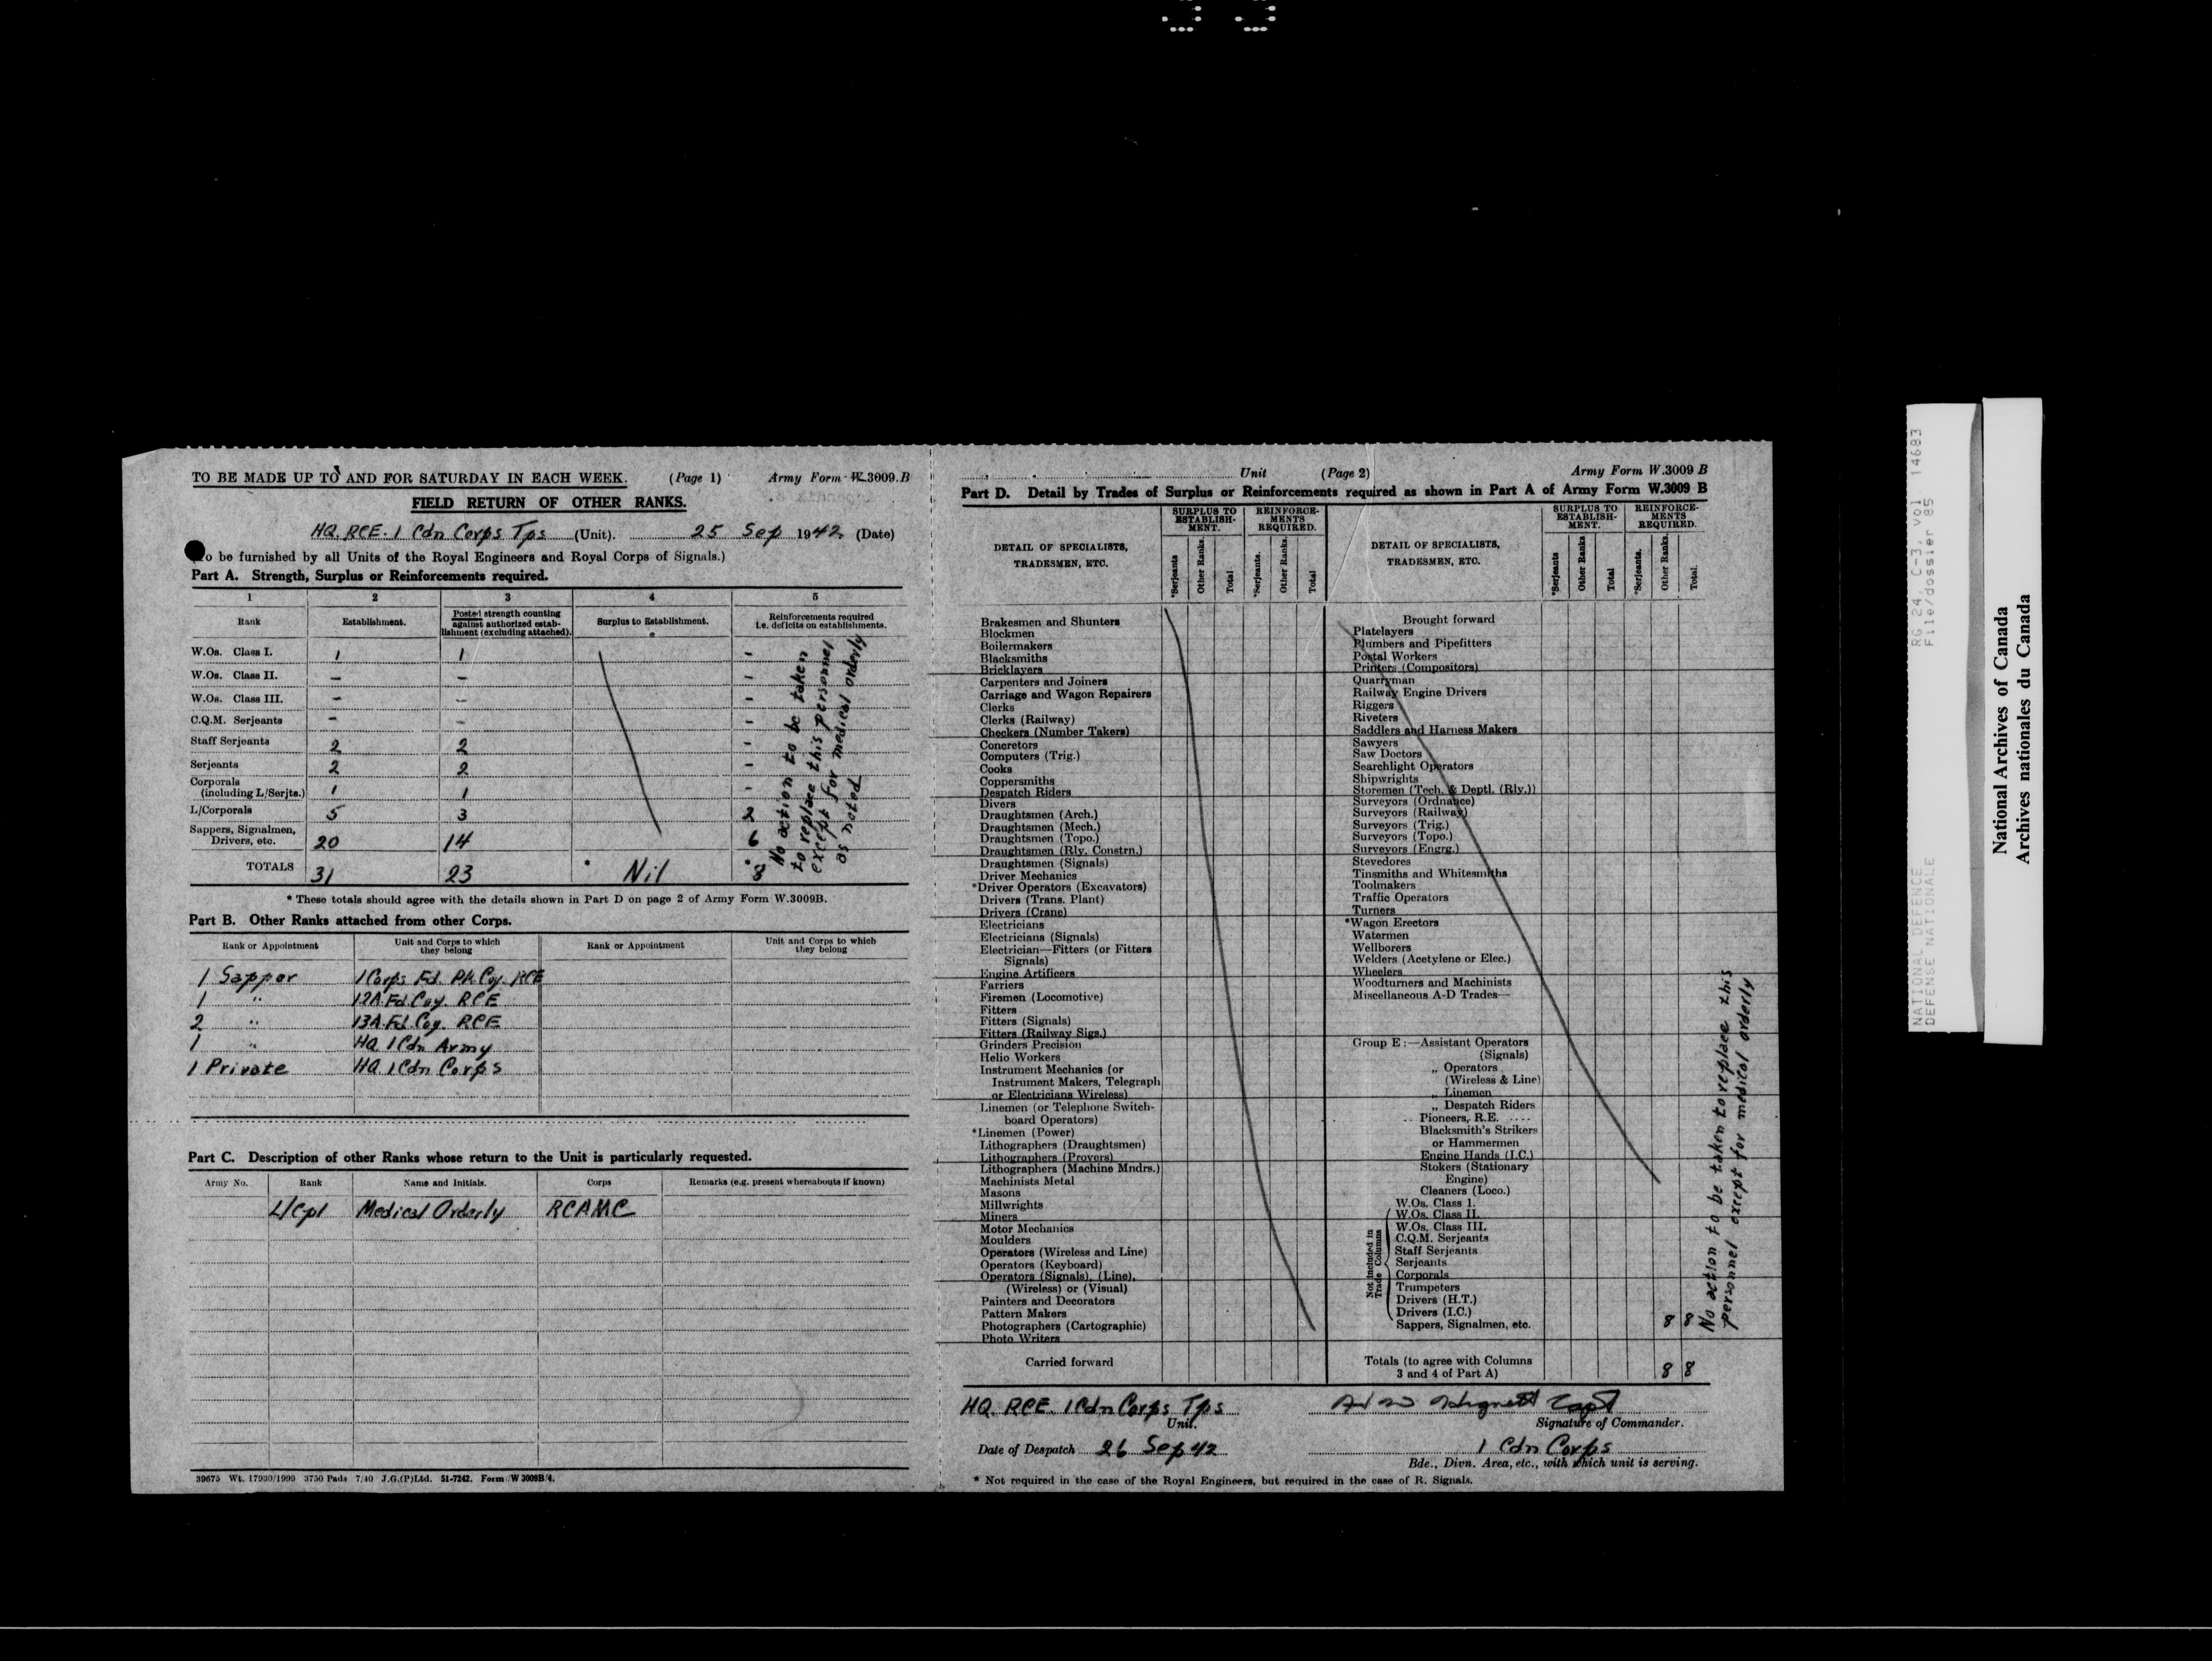 TO BE MADE UP TO AND FOR SATURDAY IN EACH WEEK. (Page 1) Army Form W.3009.B
FIELD RETURN OF OTHER RANKS.
HQ. RCE. 1 Cdn Corps Tps (Unit). 25 Sep 1942 (Date)
To be furnished by all Units of the Royal Engineers and Royal Corps of Signals.)
Part A. Strength, Surplus or Reinforcements required.
1 2 3 4 5
Rank Establishment. Posted strength counting against authorized establishment (excluding attached). Surplus to Establishment. Reinforcements required i.e. deficits on establishments.
W.Os. Class I. 1 1 -
W.Os. Class II. - - -
W.Os. Class III. - - -
C.Q.M. Serjeants - - -
Staff Serjeants 2 2 -
Serjeants 2 2 -
Corporals
(including L/Serjts.) 1 1 -
L/Corporals 5 3 2
Sappers, Signalmen,
Drivers, etc. 20 14 6
TOTALS 31 23 * Nil * 8
No action to be taken
to replace this personnel
except for medical orderly
as noted
* These totals should agree with the details shown in Part D on page 2 of Army Form W.3009B.
Part B. Other Ranks attached from other Corps.
Rank or Appointment Unit and Corps to which they belong Rank or Appointment Unit and Corps to which they belong
1 Sapper 1 Corps Fd. Pk. Coy. RCE
1 " 12A. Fd. Coy. RCE
2 " 13A. Fd. Coy. RCE
1 " HQ 1 Cdn Army
1 Private HQ 1 Cdn Corps
Part C. Description of other Ranks whose return to the Unit is particularly requested.
Army No. Rank Name and Initials. Corps Remarks (e.g. present whereabouts if known)
L/Cpl Medical Orderly RCAMC
39675 Wt. 17930/1999 3750 Pads 7/40 J.G.(P)Ltd. 51-7242. Form W 3009B/4.
Unit (Page 2) Army Form W.3009 B
Part D. Detail by Trades of Surplus or Reinforcements required as shown in Part A of Army Form W.3009 B
DETAIL OF SPECIALISTS, TRADESMEN, ETC.
SURPLUS TO ESTABLISHMENT. REINFORCEMENTS REQUIRED.
*Serjeants Other Ranks. Total *Serjeants. Other Ranks. Total
Brakesmen and Shunters
Blockmen
Boilermakers
Blacksmiths
Bricklayers
Carpenters and Joiners
Carriage and Wagon Repairers
Clerks
Clerks (Railway)
Checkers (Number Takers)
Concretors
Computers (Trig.)
Cooks
Coppersmiths
Despatch Riders
Divers
Draughtsmen (Arch.)
Draughtsmen (Mech.)
Draughtsmen (Topo.)
Draughtsmen (Rly. Constrn.)
Draughtsmen (Signals)
Driver Mechanics
*Driver Operators (Excavators)
Drivers (Trans. Plant)
Drivers (Crane)
Electricians
Electricians (Signals)
Electrician—Fitters (or Fitters
Signals)
Engine Artificers
Farriers
Firemen (Locomotive)
Fitters
Fitters (Signals)
Fitters (Railway Sigs.)
Grinders Precision
Helio Workers
Instrument Mechanics (or
Instrument Makers, Telegraph
or Electricians Wireless)
Linemen (or Telephone Switch-
board Operators)
*Linemen (Power)
Lithographers (Draughtsmen)
Lithographers (Provers)
Lithographers (Machine Mndrs.)
Machinists Metal
Masons
Millwrights
Miners
Motor Mechanics
Moulders
Operators (Wireless and Line)
Operators (Keyboard)
Operators (Signals), (Line),
(Wireless) or (Visual)
Painters and Decorators
Pattern Makers
Photographers (Cartographic)
Photo Writers
Carried forward
DETAIL OF SPECIALISTS, TRADESMEN, ETC.
SURPLUS TO ESTABLISHMENT. REINFORCEMENTS REQUIRED.
*Serjeants Other Ranks Total *Serjeants. Other Ranks. Total.
Brought forward
Platelayers
Plumbers and Pipefitters
Postal Workers
Printers (Compositors)
Quarryman
Railway Engine Drivers
Riggers
Riveters
Saddlers and Harness Makers
Sawyers
Saw Doctors
Searchlight Operators
Shipwrights
Storemen (Tech. & Deptl. (Rly.))
Surveyors (Ordnance)
Surveyors (Railway)
Surveyors (Trig.)
Surveyors (Topo.)
Surveyors (Engrg.)
Stevedores
Tinsmiths and Whitesmiths
Toolmakers
Traffic Operators
Turners
*Wagon Erectors
Watermen
Wellborers
Welders (Acetylene or Elec.)
Wheelers
Woodturners and Machinists
Miscellaneous A-D Trades—
Group E:—Assistant Operators
(Signals)
„ Operators
(Wireless & Line)
„ Linemen
„ Despatch Riders
Pioneers, R.E.
Blacksmith's Strikers
or Hammermen
Engine Hands (I.C.)
Stokers (Stationary
Engine)
Cleaners (Loco.)
Not included in Trade Columns
W.Os. Class I.
W.Os. Class II.
W.Os. Class III.
C.Q.M. Serjeants
Staff Serjeants
Serjeants
Corporals
Trumpeters
Drivers (H.T.)
Drivers (I.C.)
Sappers, Signalmen, etc. 8 8
Totals (to agree with Columns
3 and 4 of Part A) 8 8
No action to be taken to replace this
personnel except for medical orderly
HQ. RCE. 1 Cdn Corps Tps
Unit.
Capt
Signature of Commander.
Date of Despatch 26 Sep 42
1 Cdn Corps
Bde., Divn. Area, etc., with which unit is serving.
* Not required in the case of the Royal Engineers, but required in the case of R. Signals.
NATIONAL DEFENCE RG 24, C-3, vol 14683
DEFENSE NATIONALE File/dossier 85
National Archives of Canada
Archives nationales du Canada